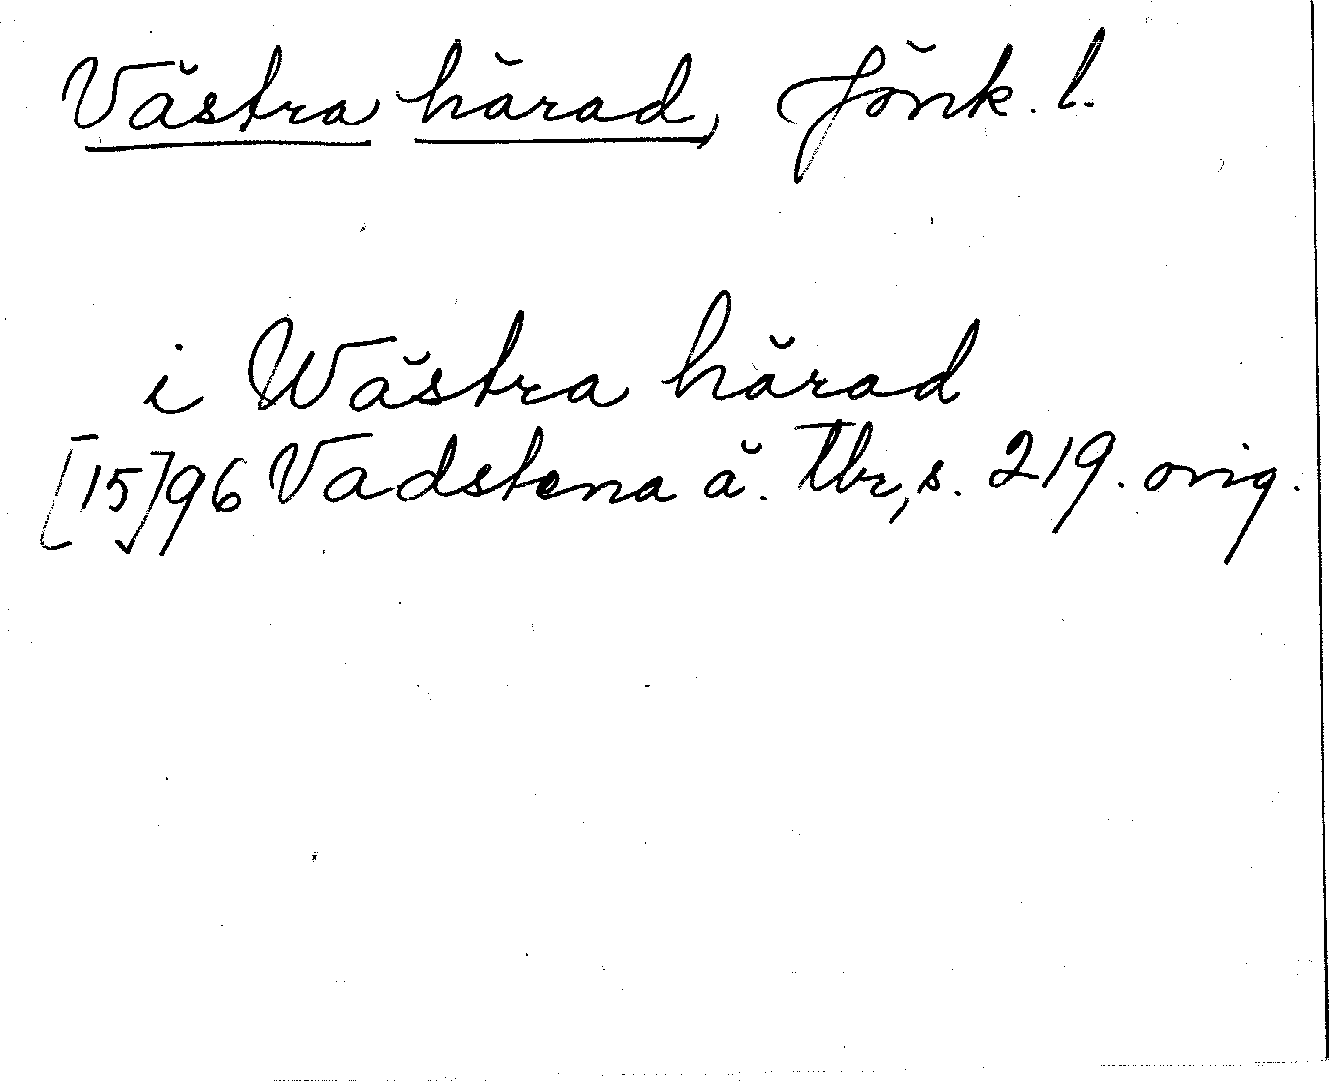 Västra härad, Jönk. l.
i Wästra härad
[15]96 Vadstena ä. Tbr, s. 219. orig.